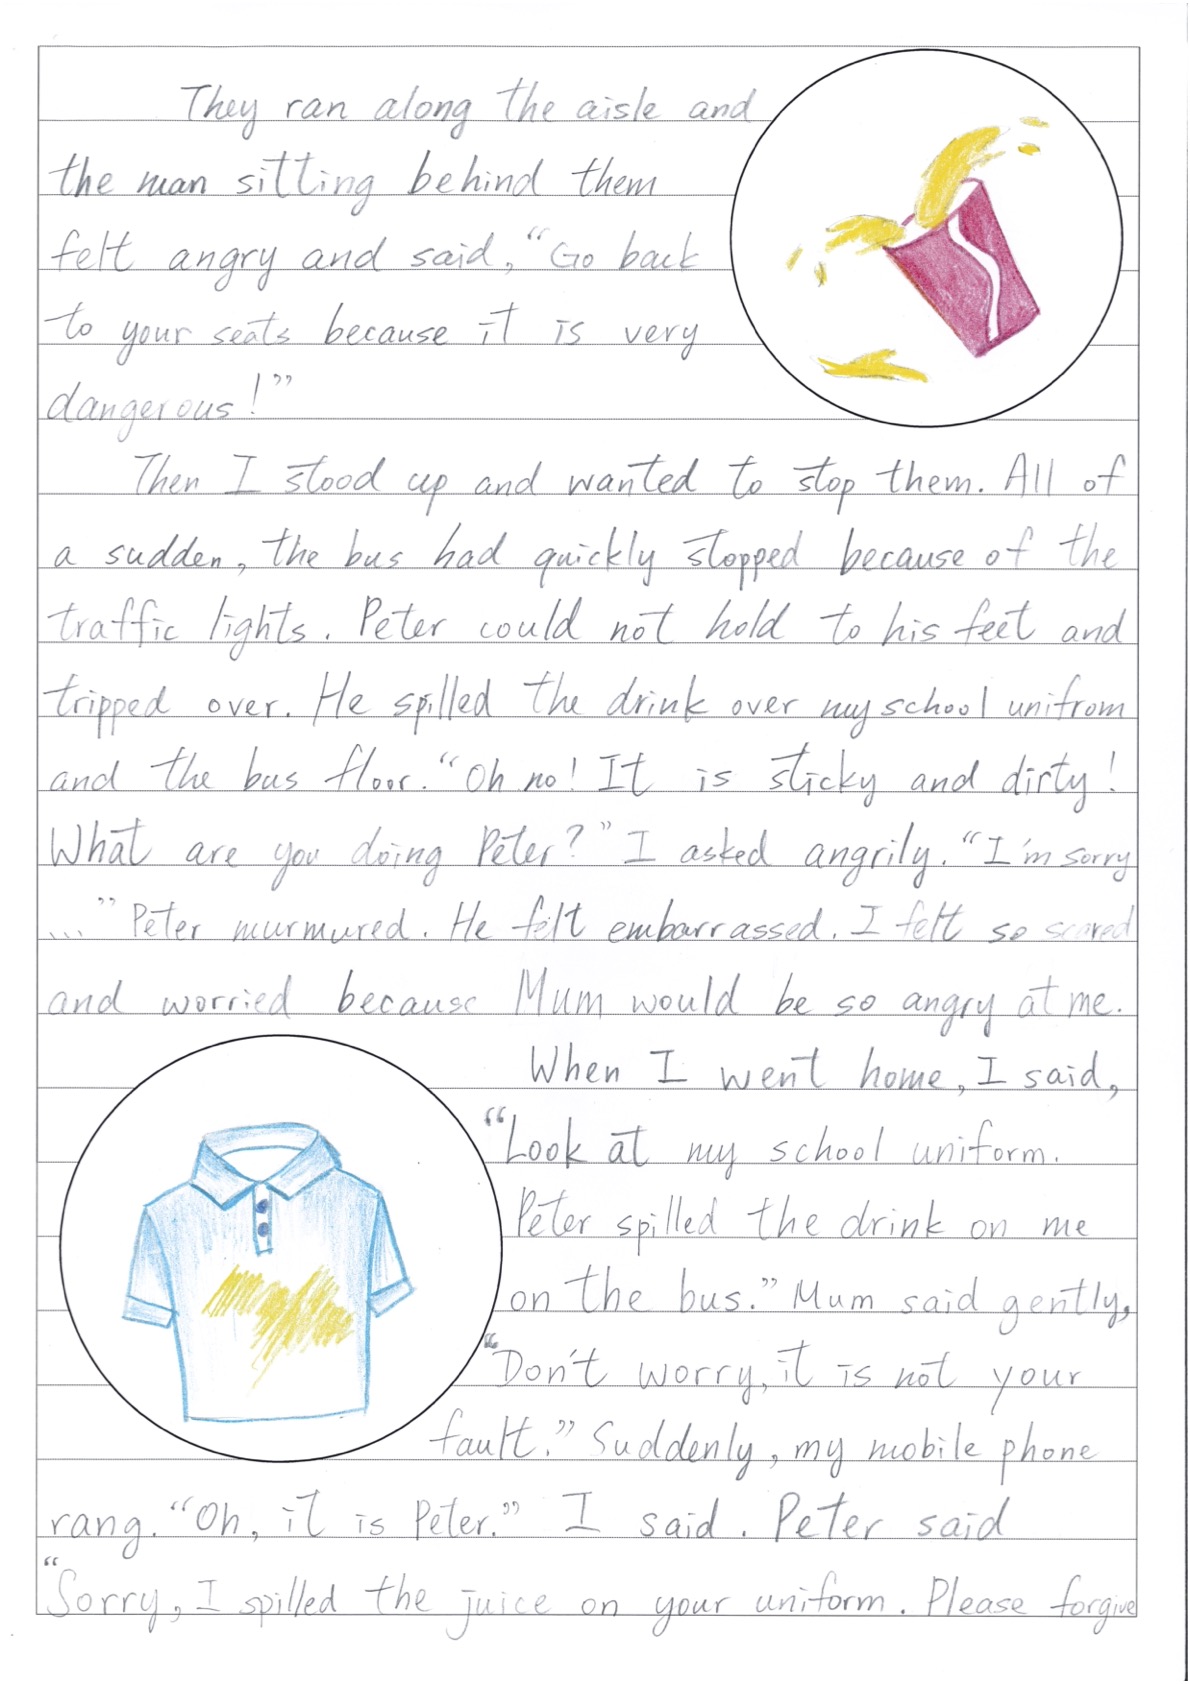 They ran along the aisle and
the man sitting behind them
felt angry and said, “Go back
to your seats because it is very
dangerous!”
Then I stood up and wanted to stop them. All of
a sudden, the bus had quickly stopped because of the
traffic lights. Peter could not hold to his feet and
tripped over. He spilled the drink over my school unifrom
and the bus floor. “Oh no! It is sticky and dirty!
What are you doing Peter?” I asked angrily. “I'm sorry
...” Peter murmured. He felt embarrassed. I felt so scared
and worried because Mum would be so angry at me.
When I went home, I said,
“Look at my school uniform.
Peter spilled the drink on me
on the bus.” Mum said gently,
“Don't worry, it is not your
fault.” Suddenly, my mobile phone
rang. “Oh, it is Peter.” I said. Peter said
“Sorry, I spilled the juice on your uniform. Please forgive